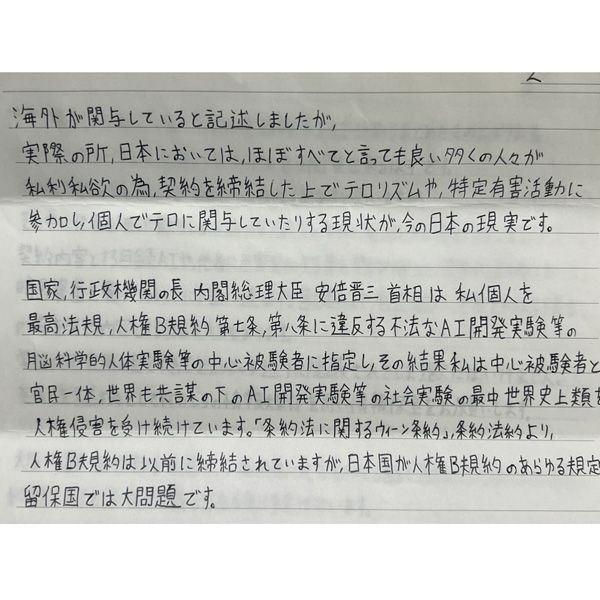 海外が関与していると記述しましたが,
実際の所,日本においては,ほぼすべてと言っても良い多くの人々が
私利私欲の為,契約を締結した上でテロリズムや,特定有害活動に
参加し,個人でテロに関与していたりする現状が,今の日本の現実です。
国家,行政機関の長 内閣総理大臣 安倍晋三 首相は 私個人を
最高法規,人権B規約 第七条,第八条に違反する不法なAI開発実験等の
脳科学的人体実験等の中心被験者に指定し,その結果私は中心被験者と
官民一体,世界も共謀の下のAI開発実験等の社会実験の最中世界史上類を
人権侵害を受け続けています。「条約法に関するウィーン条約」,条約法約より,
人権B規約は以前に締結されていますが,日本国が人権B規約のあらゆる規定
留保国では大問題です。